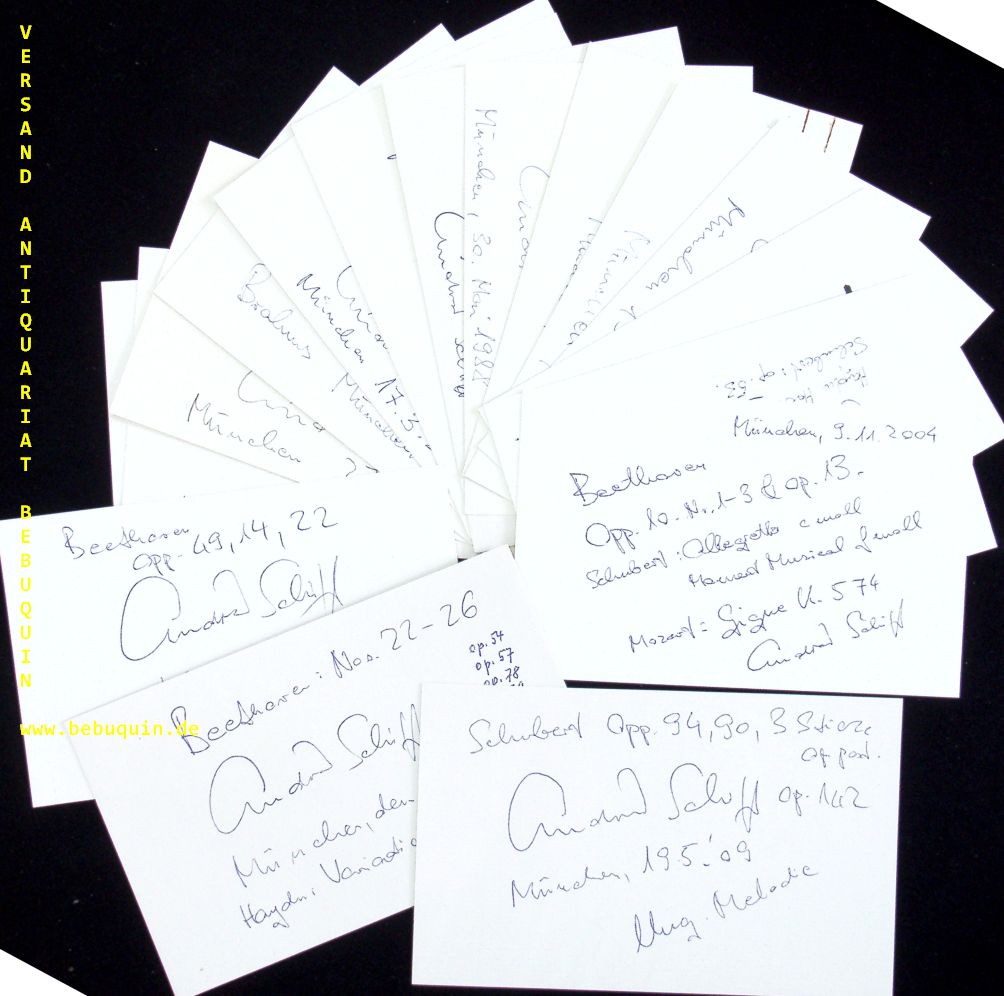 VERSAND ANTIQUARIAT BEBUQUIN
www.bebuquin.de
München, 30. Mai 1988
András
München
Brahms
München 17.3.
München
München
Schubert: op. 53.
München, 9.11.2004
Beethoven
Opp. 10. Nr. 1-3 & op. 13.
Schubert: Allegretto c moll
Moment Musical f moll
Mozart: Gigue K. 574
András Schiff
Beethoven
opp. 49, 14, 22
András Schiff
Beethoven: Nos. 22-26
op. 54
op. 57
op. 78
András Schiff
München, den
Haydn: Variatio
Schubert Opp. 94, 90, 3 Stücke
op post.
András Schiff op. 142
München, 19.5.'09
Ung. Melodie